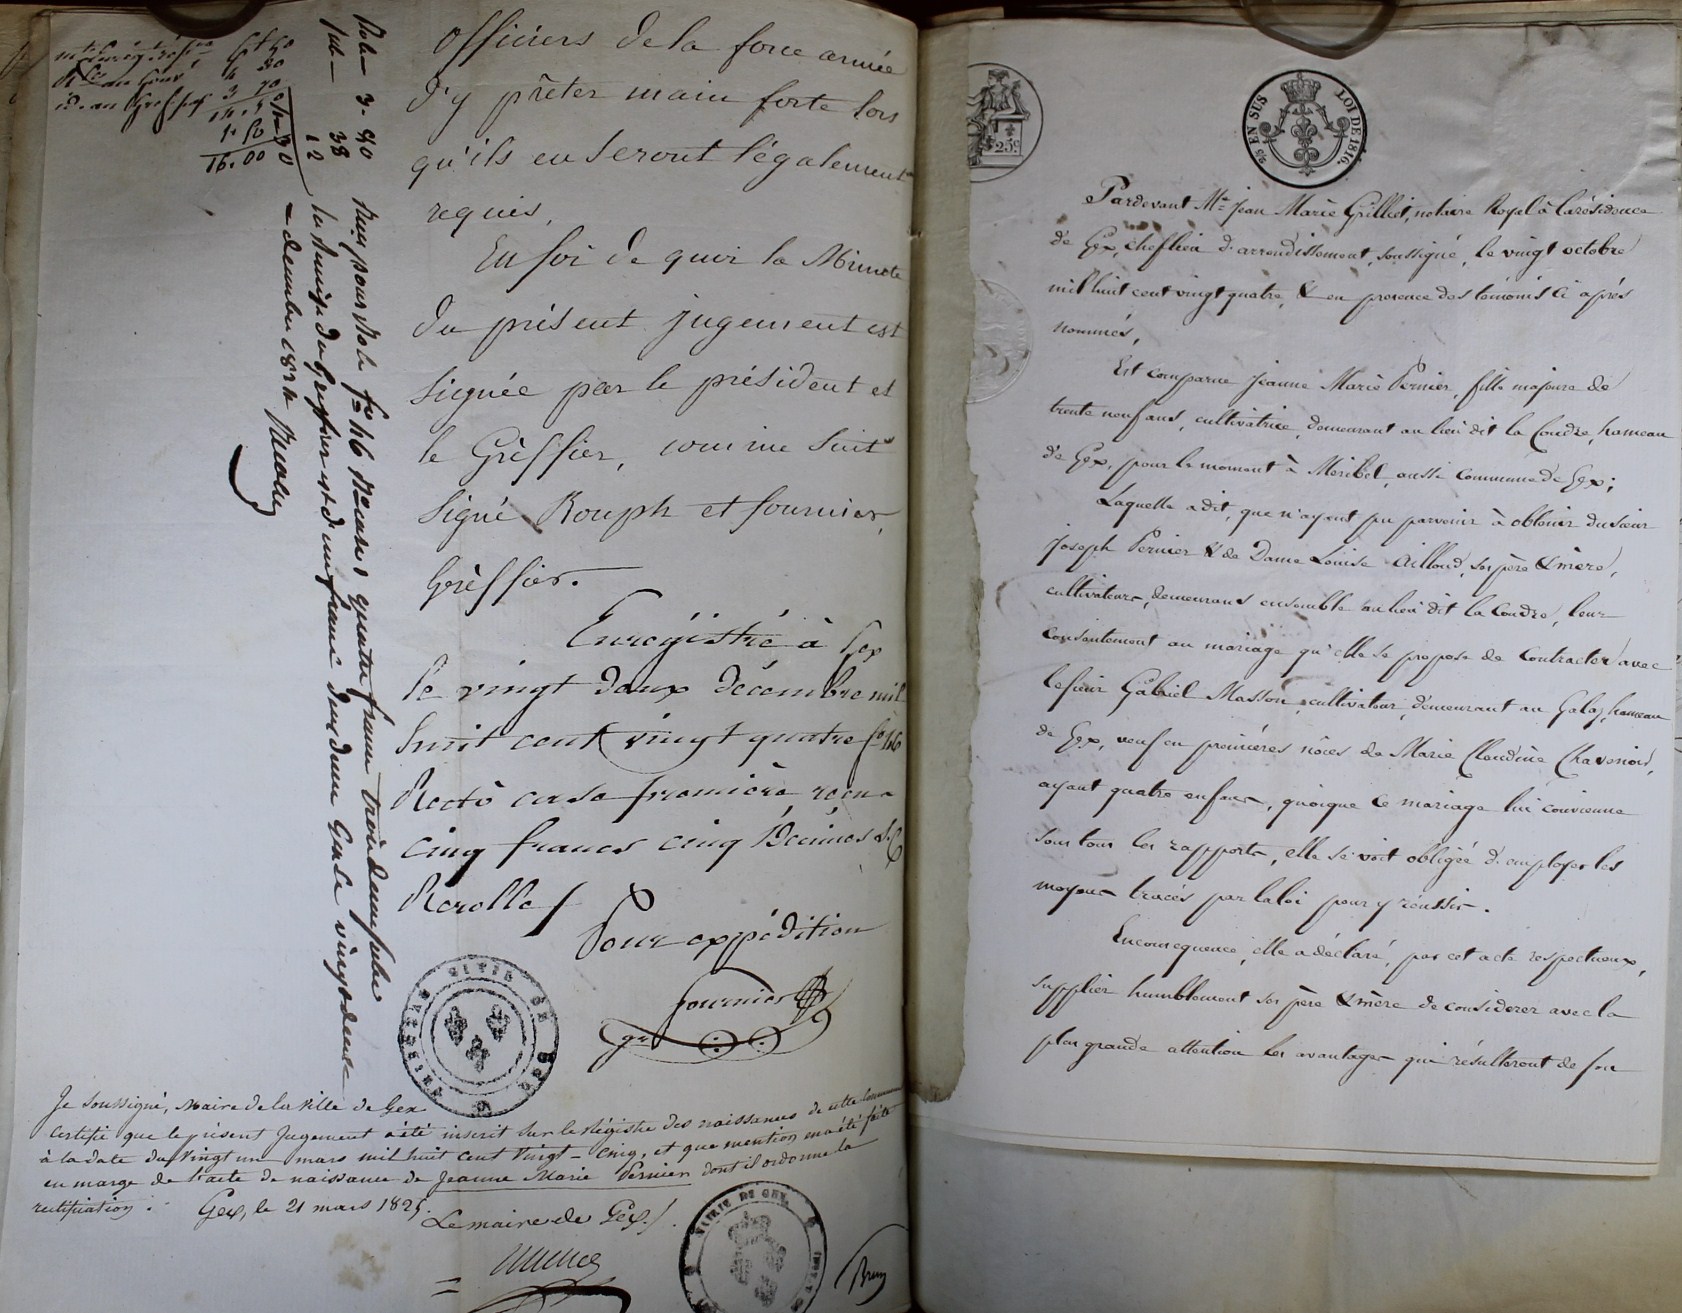 officiers de la force armée
d'y prêter main forte lors
qu'ils en seront légalement
requis.
En foi de quoi la Minute
du présent jugement est
signée par le président et
le Gréffier, comme suit
signé Rouph et fournier,
Gréffier.
Enregistré à Gex
le vingt deux décembre mil
huit cent vingt quatre fo 46
Recto case première, reçu
cinq francs cinq Décimes
Pour expédition
fournier
gr
Je soussigné, Maire de la Ville de Gex
certifie que le présent Jugement a été inscrit sur le Régistre des naissances de cette Commune
à la date du Vingt un mars mil huit cent Vingt-cinq, et que mention en a été faite
en marge de l'acte de naissance de Jeanne Marie Pernier dont il ordonne la
rectification. Gex, le 21 mars 1825.
Le maire de Gex
MAIRIE DE GEX
6 50
4 80
3 20
14.50
1.50
16.00
3. 40
38
12
Reçu pour fo 46 Recto quatre francs trois décimes
du Greffier est d'un franc Gex le vingt deux
décembre 1824
25c
25 EN SUS
LOI DE 1816.
Pardevant Me Jean Marie Grilliet, notaire Royal à la résidence
de Gex, cheflieu d'arrondissement, soussigné, le vingt octobre
mil huit cent vingt quatre, & en presence des témoins ci après
nommés,
Est comparue Jeanne Marie Pernier, fille majeure de
trente neuf ans, cultivatrice, demeurant au lieu dit la Coudre, hameau
de Gex, pour le moment à Meribel, aussi commune de Gex;
Laquelle a dit, que n'ayant pu parvenir à obtenir du sieur
Joseph Pernier & de Dame Louise Ailloud, ses père & mère,
cultivateurs, demeurans ensemble au lieu dit la Coudre, leur
consentement au mariage qu'elle se propose de Contracter avec
le sieur Gabriel Masson, cultivateur, demeurant au Galaz, hameau
de Gex, veuf en premières nôces de Marie Claudine Chavenoid,
ayant quatre enfans, quoique ce mariage lui convienne
sous tous les rapports, elle se voit obligée d'employer les
moyens tracés par la loi pour y réussir.
En consequence, elle a déclaré, par cet acte respectueux,
supplier humblement ses père & mère de considerer avec la
plus grande attention les avantages qui résulteront de son